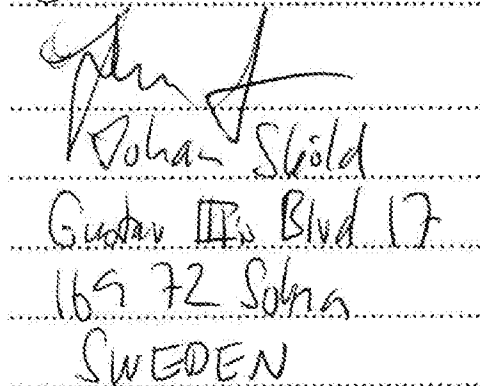 Johan Skiöld
Gustav III:s Blvd 17
169 72 Solna
SWEDEN